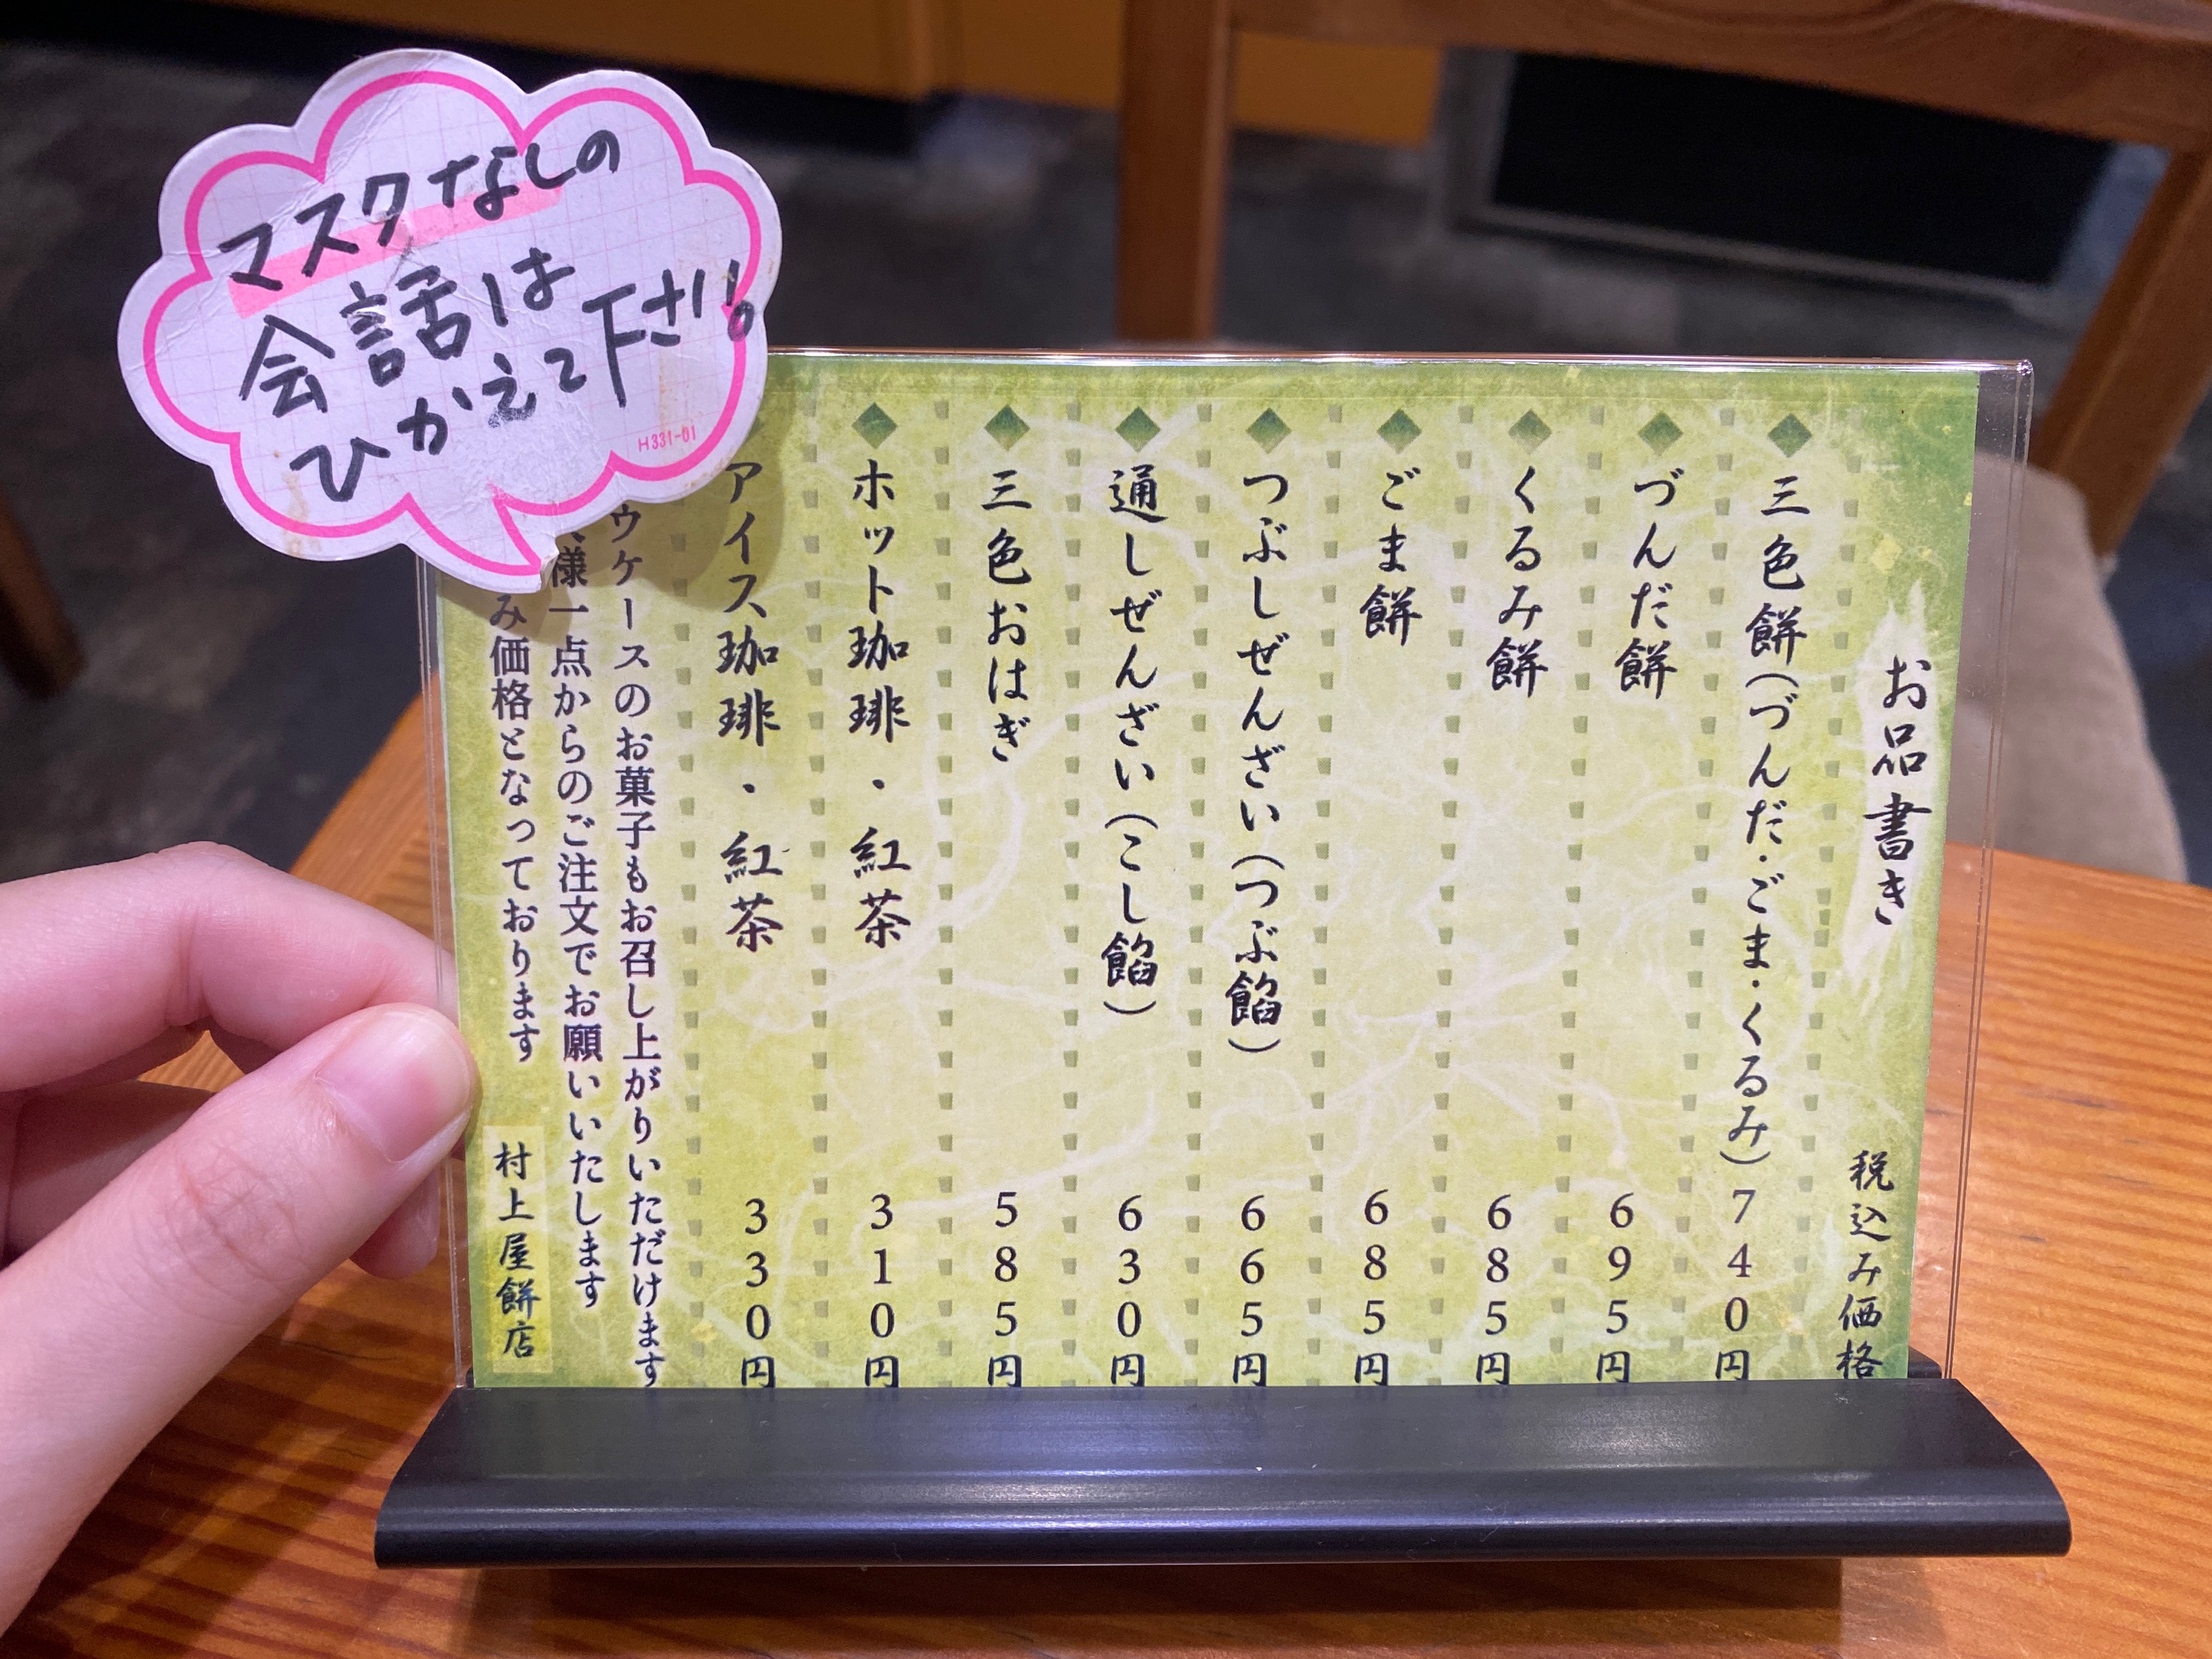 マスクなしの
会話は
ひかえて下さい。
H331-01
お品書き
税込み価格
三色餅(づんだ・ごま・くるみ) 740円
づんだ餅 695円
くるみ餅 685円
ごま餅 685円
つぶしぜんざい(つぶ餡) 665円
通しぜんざい(こし餡) 630円
三色おはぎ 585円
ホット珈琲・紅茶 310円
アイス珈琲・紅茶 330円
ウケースのお菓子もお召し上がりいただけます
様一点からのご注文でお願いいたします
み価格となっております
村上屋餅店